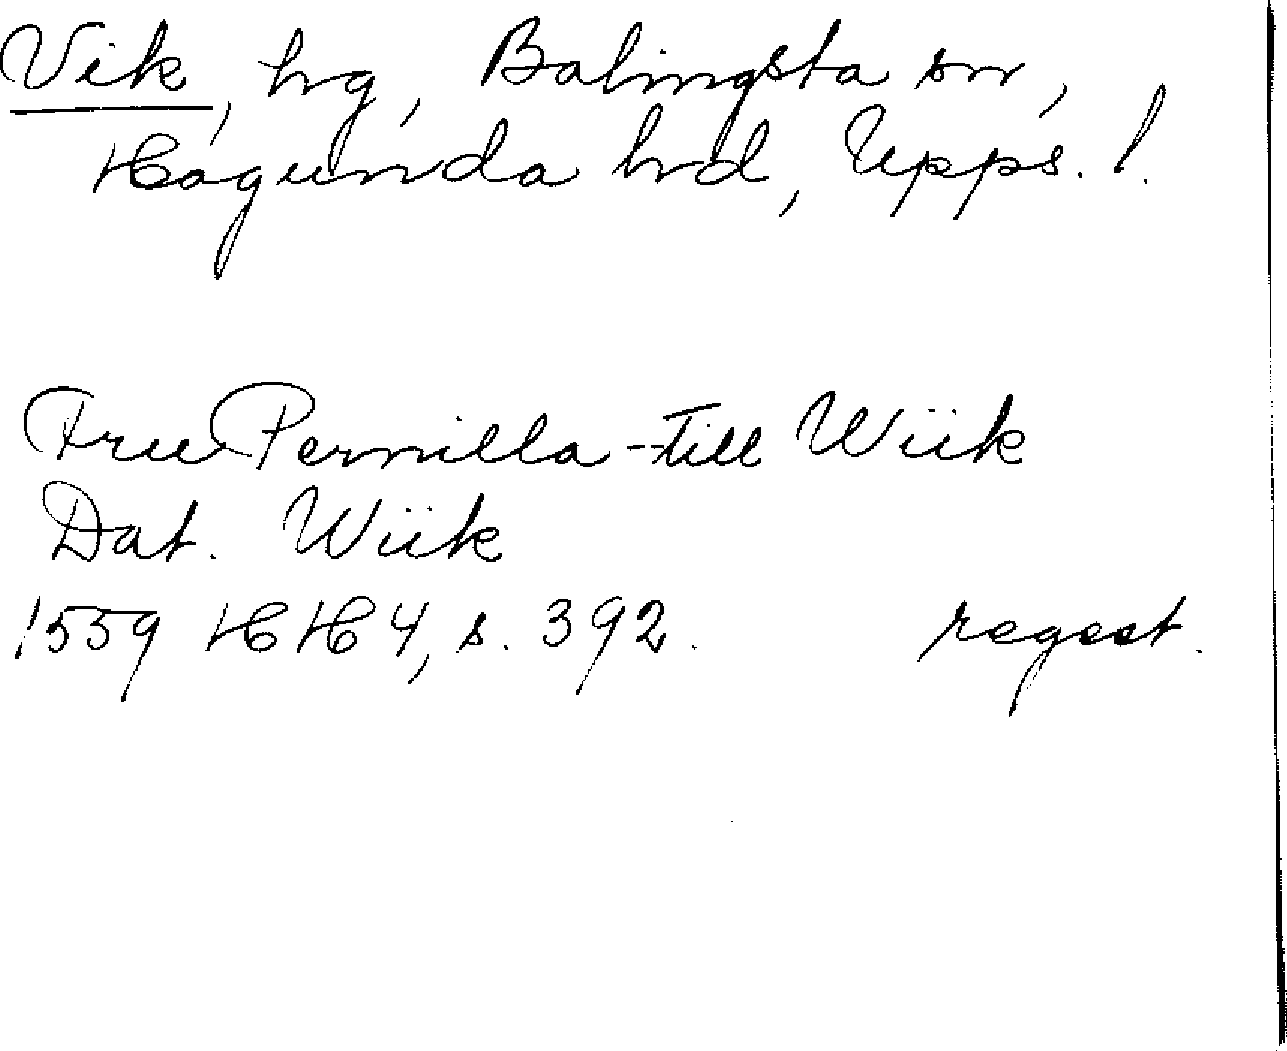 Vik, hrg, Balingsta sn,
Hagunda hrd, Upps. l.
Fru Pernilla - till Wiik
Dat. Wiik
1559 HH 4, s. 392. regest.